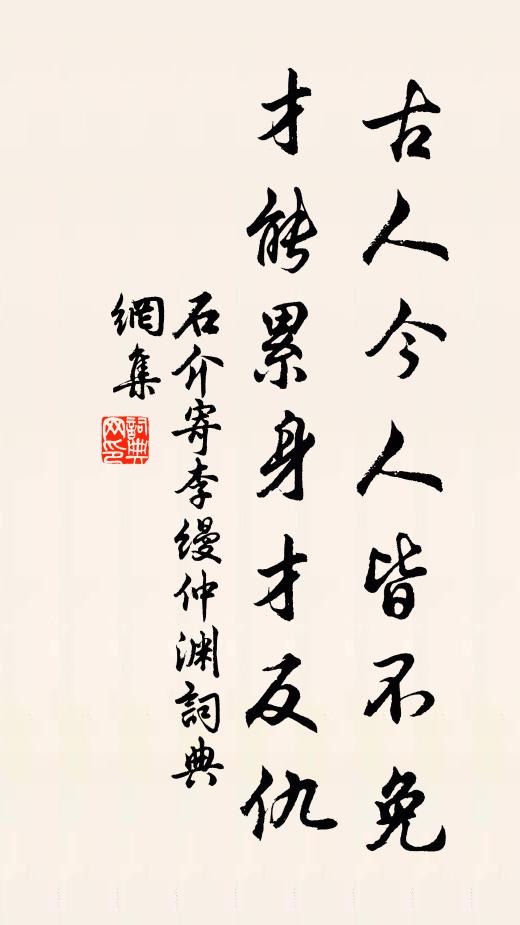 古人今人皆不免
才能累身才反仇
石介寄李缦仲渊詞典
網集
詞典
网印